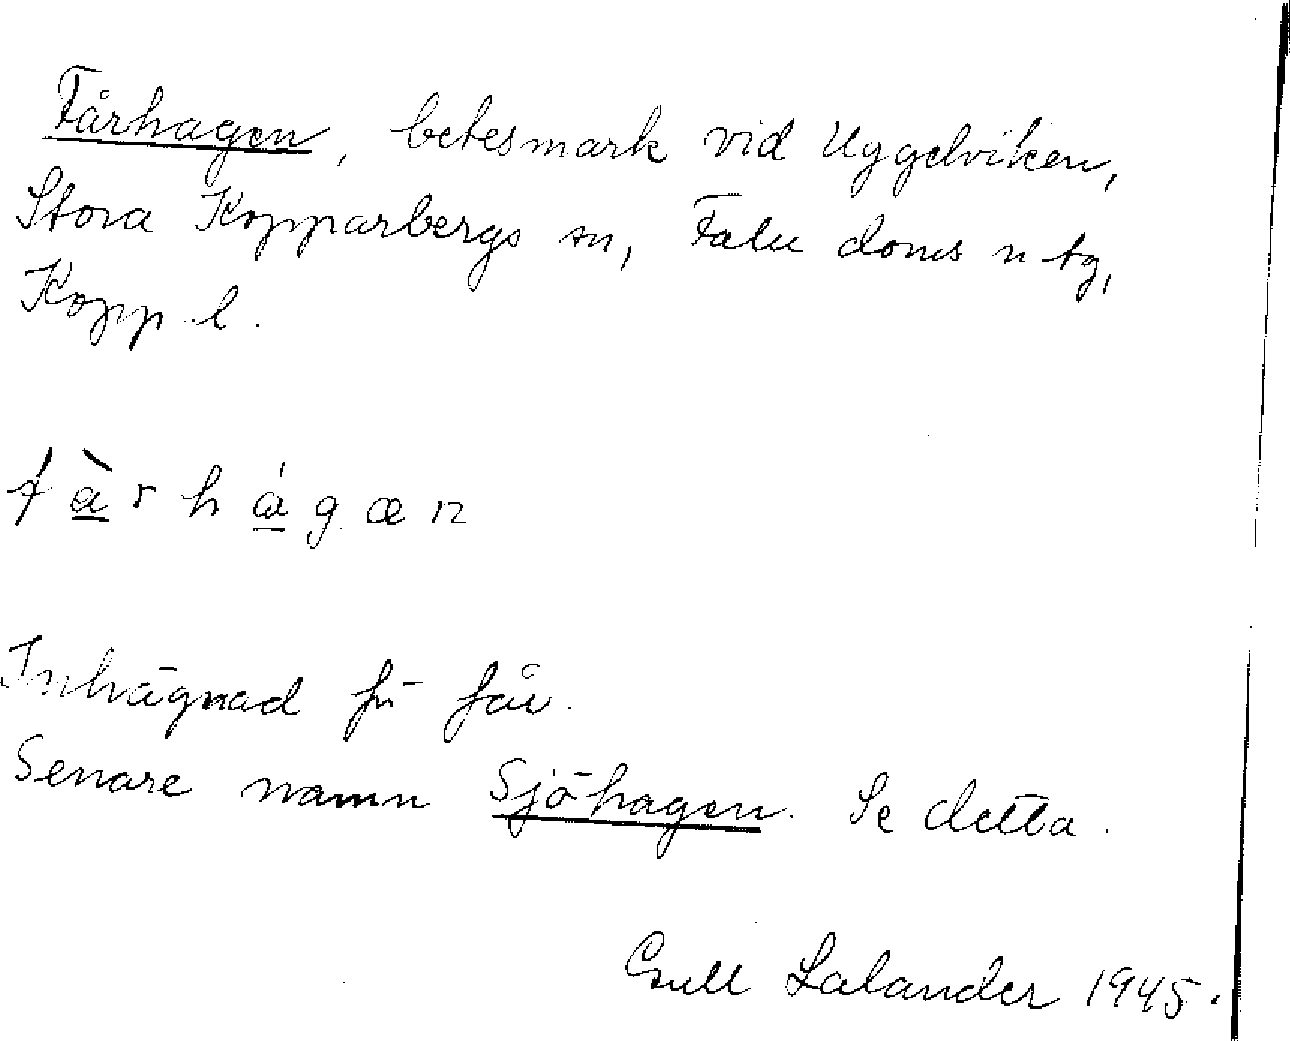 Fårhagen, betesmark vid Uggelviken,
Stora Kopparbergs sn, Falu doms n tg,
Kopp l.
f à̱ r h á̱ g œ n
Inhägnad för får.
Senare namn Sjöhagen. Se detta.
Gull Lalander 1945.